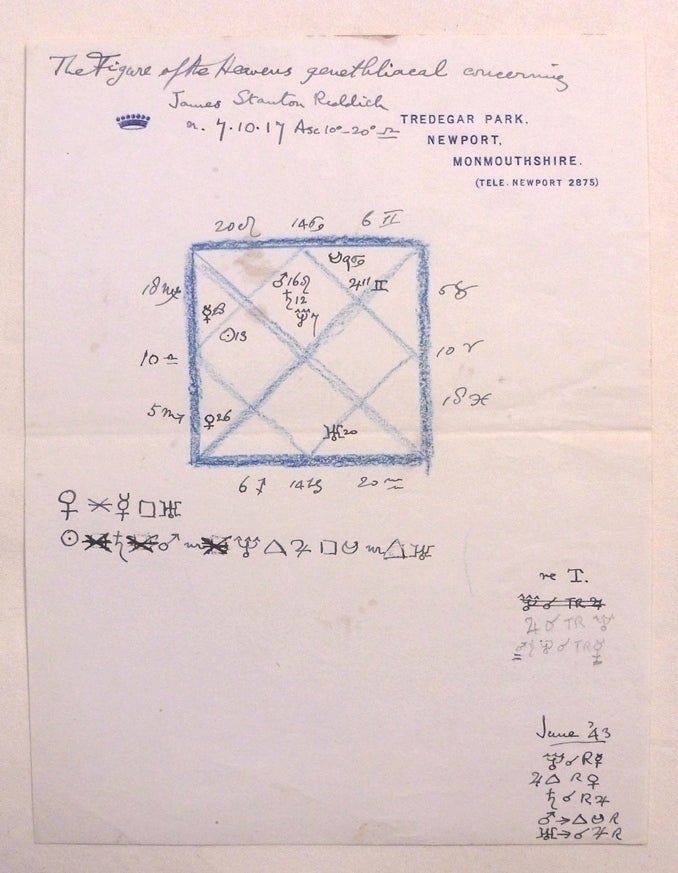 The Figure of the Heavens genethliacal concerning
James Stanton Reddick
n. 7.10.17 Asc 10°-20° ♎
TREDEGAR PARK,
NEWPORT,
MONMOUTHSHIRE.
(TELE. NEWPORT 2875)
20 ♌ 14 ♋ 6 ♊
☋ 9 ♋
18 ♍ ♂ 16 ♌ ♃ 11 ♊ 5 ♉
♄ 12
☿ ♆ 7
☉ 13
10 ♎ 10 ♈
18 ♓
5 ♏ ♀ 26
♅ 20
6 ♐ 14 ♑ 20 ♒
♀ ⚹ ☿ □ ♅
☉ ♄ ♂ ♆ △ ♃ □ ☋ △ ♅
re T.
♆ ☌ TR ♃
♃ ☌ TR ♆
♆ ☌ TR ☿
June '43
♆ ☌ R ☿
♃ △ R ♀
♄ ☌ R ♃
♂ → △ ☋ R
♅ → ☌ ♃ R